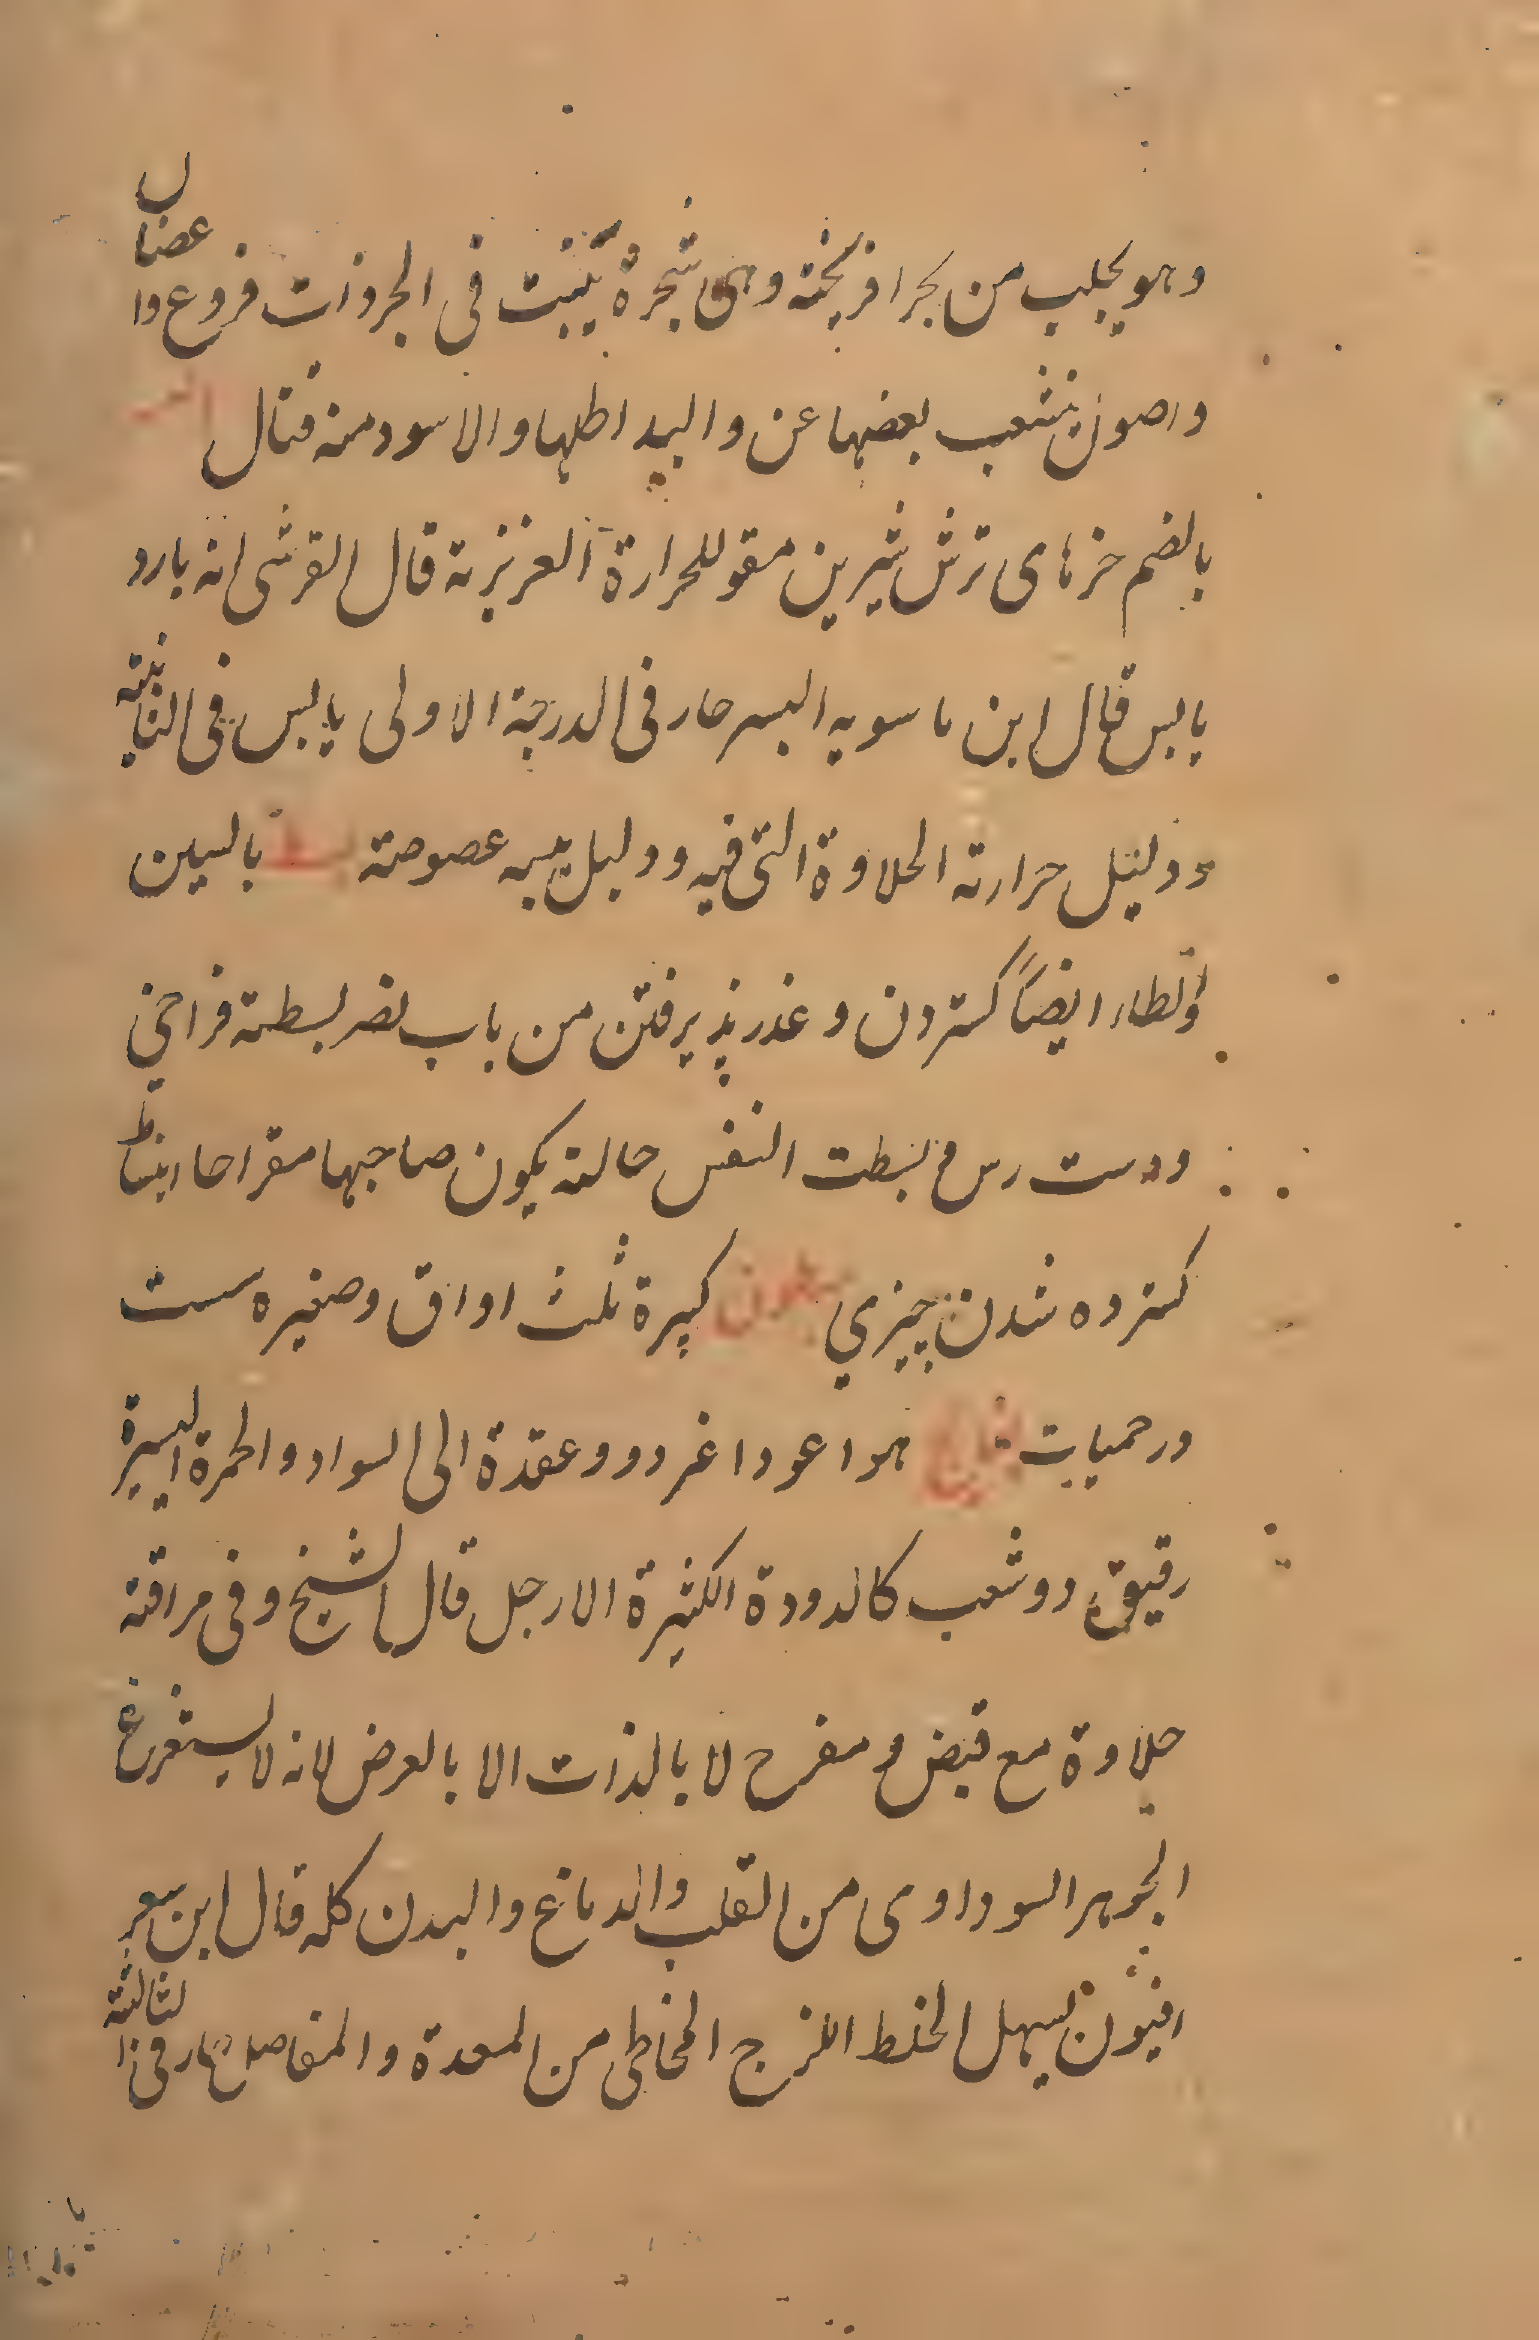 وهو يجلب من بحر افرنجة وهى شجرة تنبت فى البحر ذات فروع واعضان
واصول ينشعب بعضها عن والاسود منه قتال
بالضم خرماى ترش شيرين مقو للحرارة الغريزية قال القرشى انه بارد
يابس قال ابن ماسويه البسر حار فى الدرجة الاولى يابس فى الثانية
ودليل حرارته الحلاوة التى فيه ودليل يبسه عصوصته بسط بالسين
والطاء ايضاً كستردن وعذر پذيرفتن من باب نصر بسطة فراخى
ودست رس و بسطت النفس حالة يكون صاحبها
كسترده شدن چيزي كبيرة ثلث اواق وصغيره ست
درخميات بسفايج هو اعواد اغبر ذو عقدة الى السواد والحمرة اليسيرة
رقيق ذو شعب كالدودة الكثيرة الارجل قال الشيخ وفى مراقته
حلاوة مع قبض و مفرح لا بالذات الا بالعرض لانه لا يستفرغ
الجوهر السوداوى من القلب والدماغ والبدن كله قال ابن
افتيون يسهل الخلط اللزج المخاطى من المعدة والمفاصل حار فى الثالثة